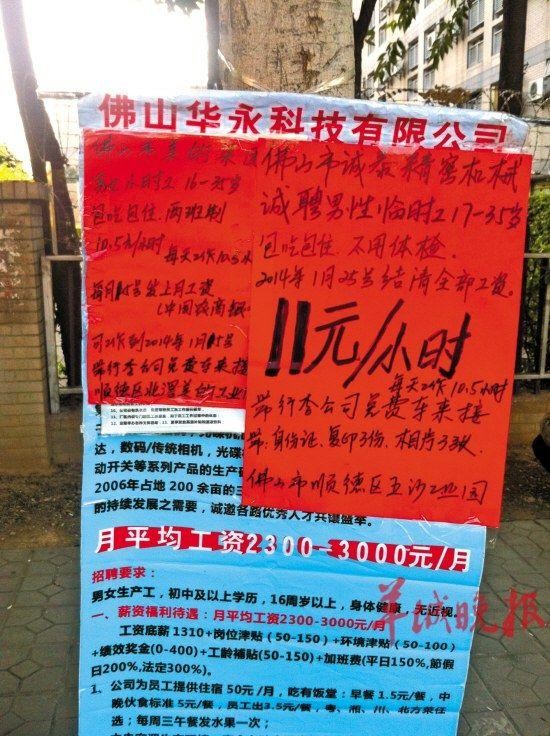 佛山华永科技有限公司
小时工16-35岁
包吃包住.两班制
10.5元/小时 每天工作10.5小时
每月15号发上月工资
可工作到2014年1月15号
带行李公司免费车来接
佛山市诚 精密机械
诚聘男性临时工17-35岁
包吃包住.不用体检.
2014年1月25号结清全部工资。
11元/小时
每天工作10.5小时
带行李公司免费车来接
带:身份证.复印3份.相片3张
佛山市顺德区五沙工业园
达，数码/传统相机，光碟
动开关等系列产品的生产
2006年占地200余亩的三
的持续发展之需要，诚邀各路优秀人才共镶盛举。
月平均工资2300-3000元/月
招聘要求：
男女生产工，初中及以上学历，16周岁以上，身体健康，无近视。
一、薪资福利待遇：月平均工资2300-3000元/月
工资底薪1310+岗位津贴（50-150）+环境津贴（50-100）
+绩效奖金(0-400)+工龄补贴(50-150)+加班费(平日150%,節假
日200%,法定300%)。
1、公司为员工提供住宿50元/月，吃有饭堂：早餐1.5元/餐，中
晚伙食标准5元/餐，员工出3.5元/餐，粤、湘、川、北方菜任
选；每周三午餐发水果一次；
羊城晚报